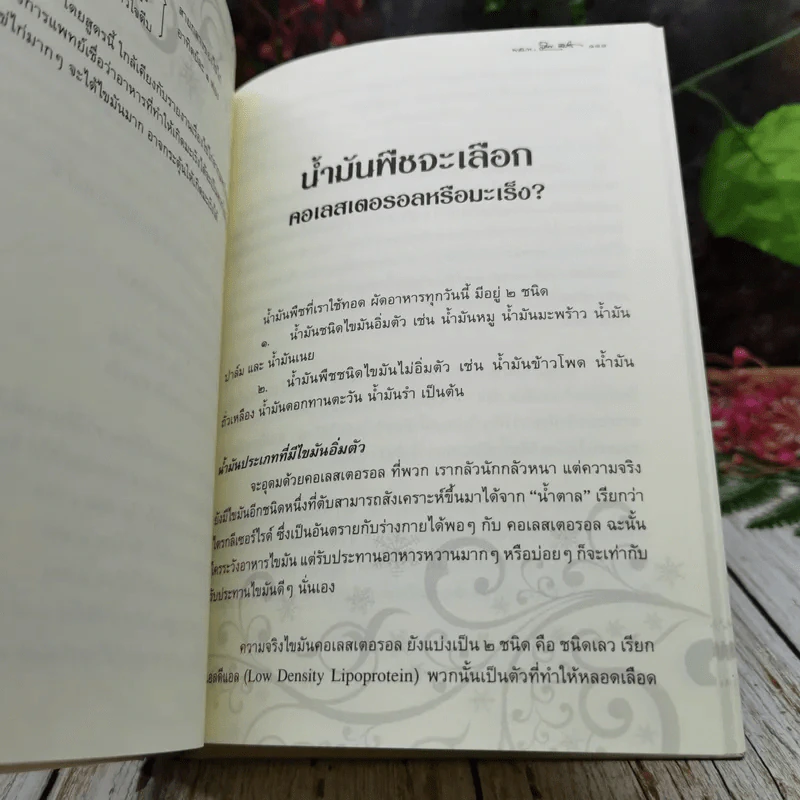 โดยสูตรนี้ ใกล้เคียงกับรายงาน
การแพทย์เชื่อว่าอาหารที่ทำให้เกิดมะเร็ง
ไก่มากๆ จะได้ไขมันมาก อาจกระตุ้นให้เกิดมะเร็งได้
๑๑๑
น้ำมันพืชจะเลือก
คอเลสเตอรอลหรือมะเร็ง?
น้ำมันพืชที่เราใช้ทอด ผัดอาหารทุกวันนี้ มีอยู่ ๒ ชนิด
๑. น้ำมันชนิดไขมันอิ่มตัว เช่น น้ำมันหมู น้ำมันมะพร้าว น้ำมัน
ปาล์ม และ น้ำมันเนย
๒. น้ำมันพืชชนิดไขมันไม่อิ่มตัว เช่น น้ำมันข้าวโพด น้ำมัน
ถั่วเหลือง น้ำมันดอกทานตะวัน น้ำมันรำ เป็นต้น
น้ำมันประเภทที่มีไขมันอิ่มตัว
จะอุดมด้วยคอเลสเตอรอล ที่พวก เรากลัวนักกลัวหนา แต่ความจริง
ยังมีไขมันอีกชนิดหนึ่งที่ตับสามารถสังเคราะห์ขึ้นมาได้จาก “น้ำตาล” เรียกว่า
ไตรกลีเซอร์ไรด์ ซึ่งเป็นอันตรายกับร่างกายได้พอๆ กับ คอเลสเตอรอล ฉะนั้น
ใครระวังอาหารไขมัน แต่รับประทานอาหารหวานมากๆ หรือบ่อยๆ ก็จะเท่ากับ
รับประทานไขมันดีๆ นั่นเอง
ความจริงไขมันคอเลสเตอรอล ยังแบ่งเป็น ๒ ชนิด คือ ชนิดเลว เรียก
แอลดีแอล (Low Density Lipoprotein) พวกนั้นเป็นตัวที่ทำให้หลอดเลือด